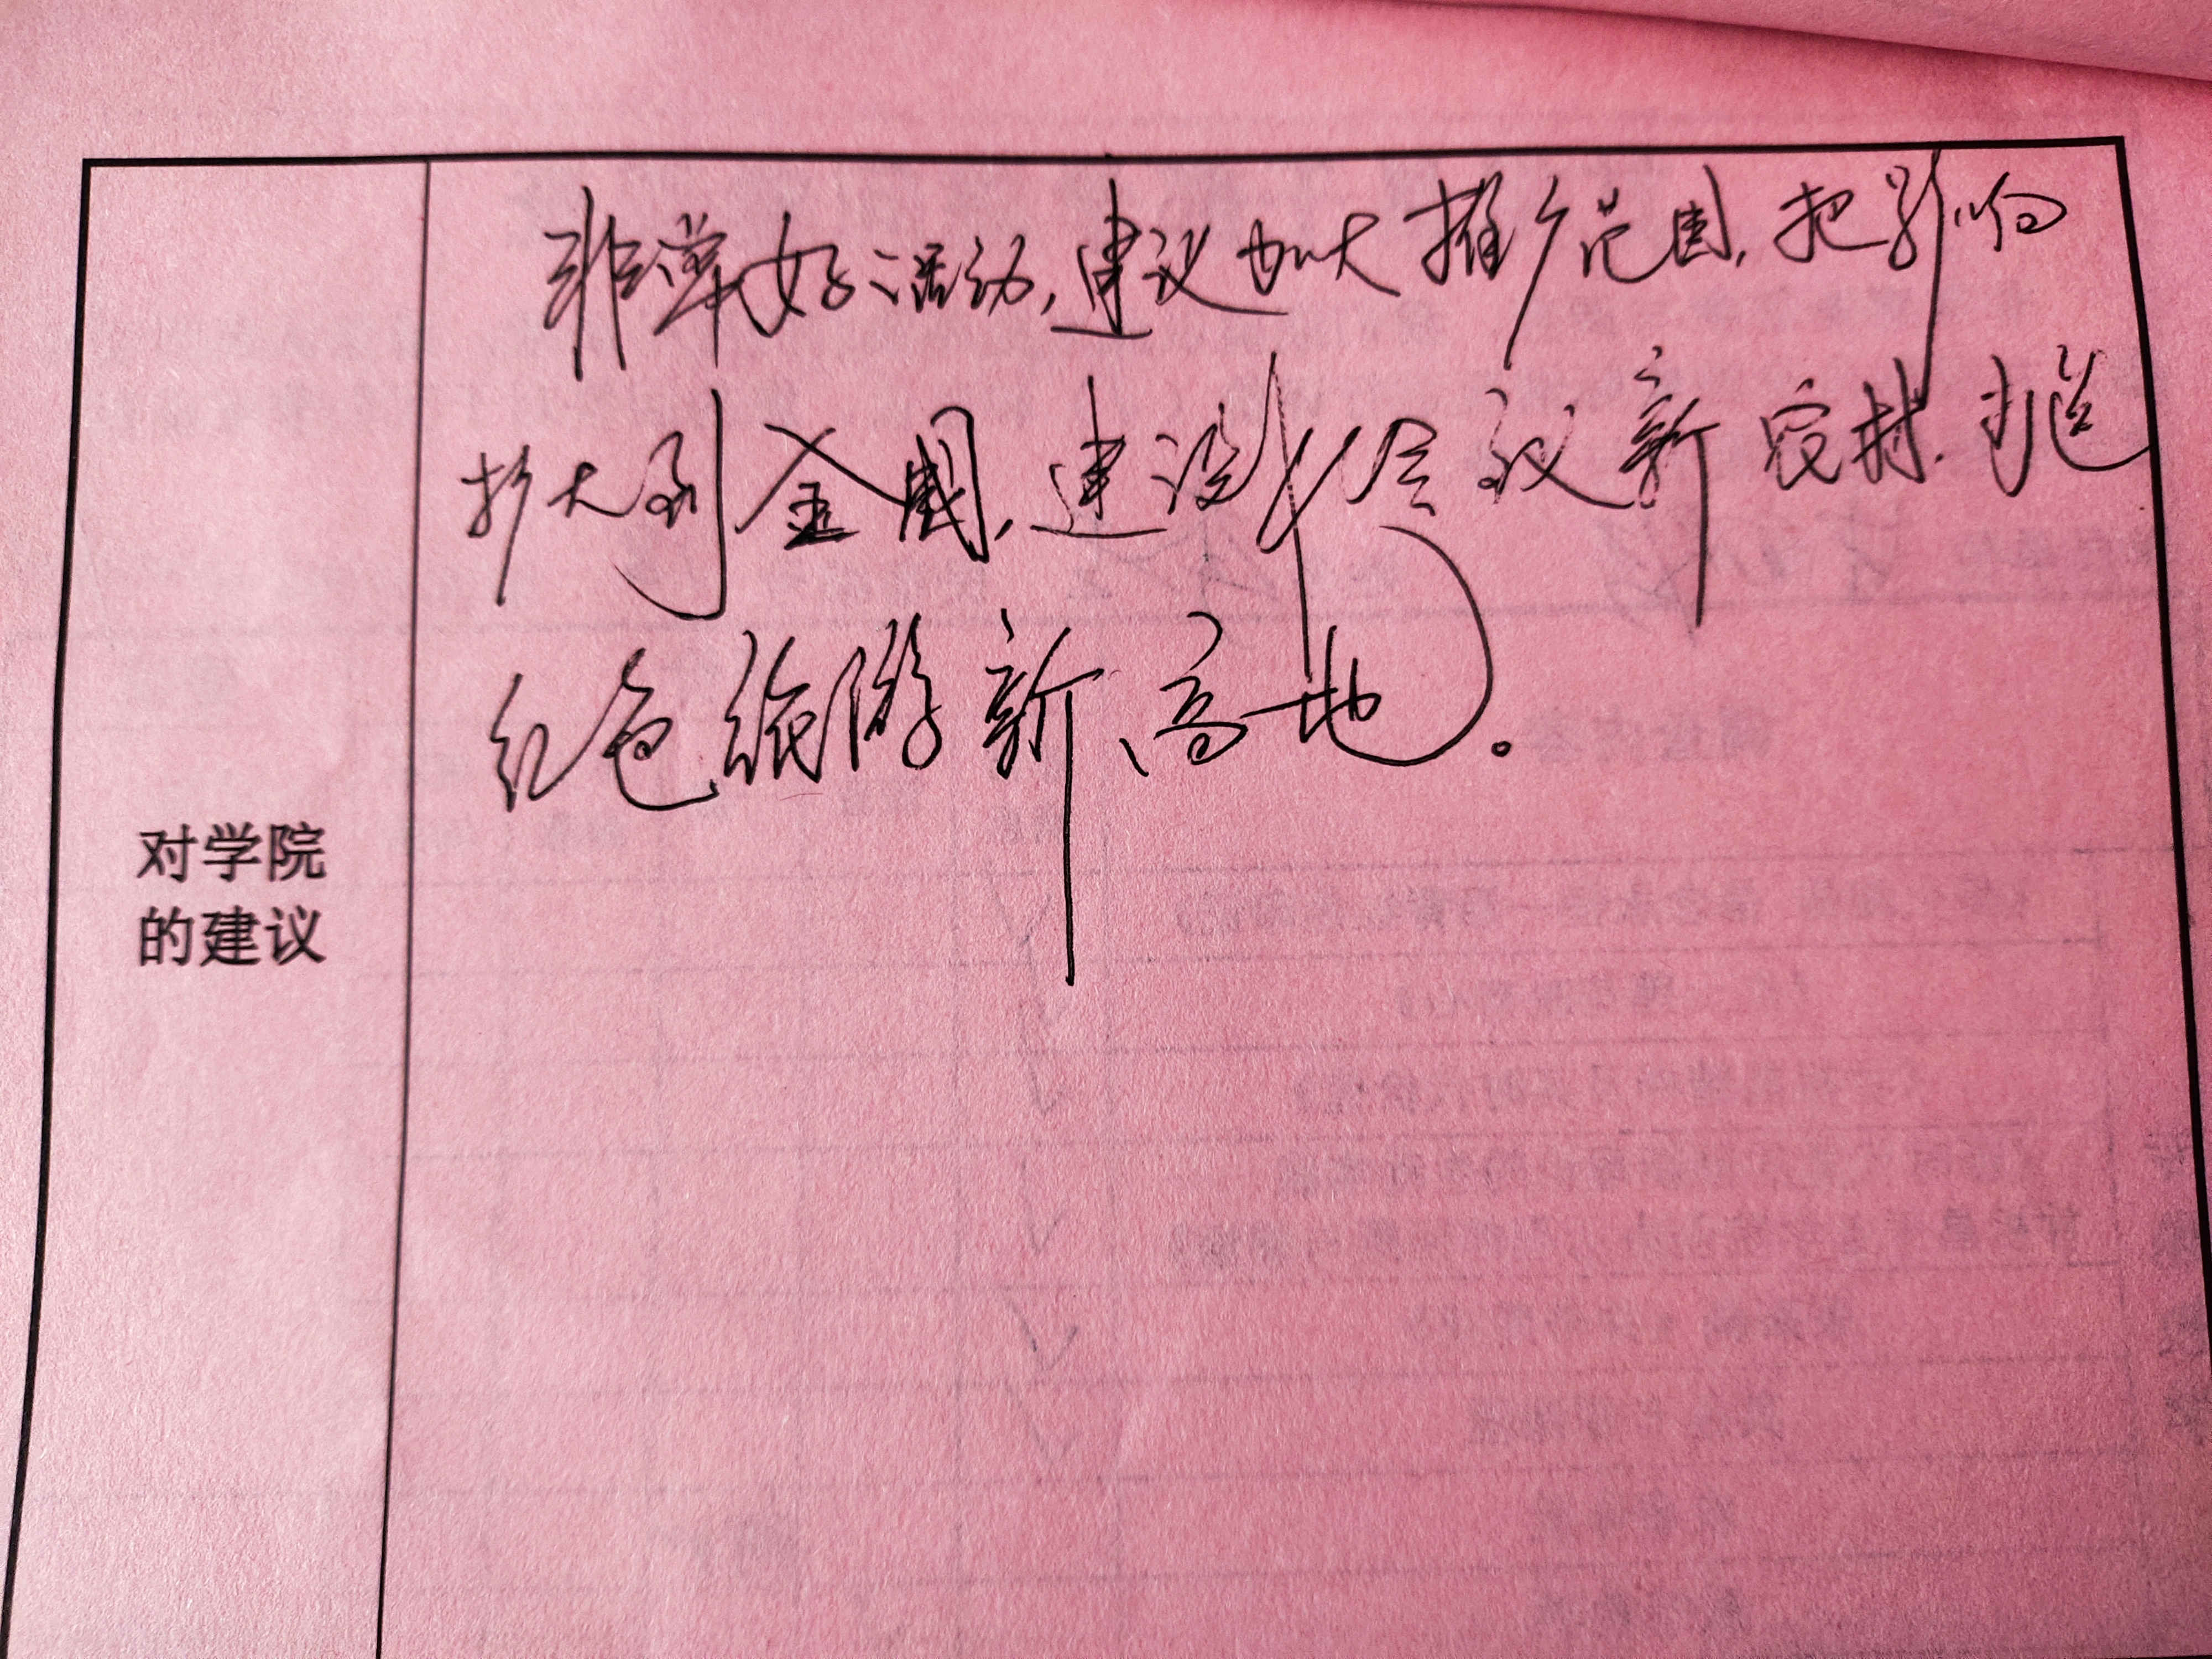 非常好活动,建议加大推广范围,把影响
扩大到全国,建设社会主义新农村,打造
红色旅游新高地。
对学院
的建议